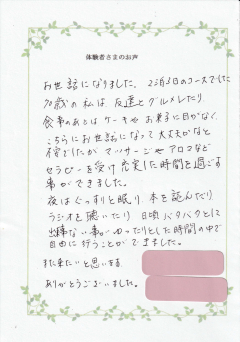 体験者さまのお声
お世話になりました。2泊3日のコースでした
70歳の私は友達とグルメしたり
食事のあとはケーキやお菓子に目がなく、
こちらにお世話になって大丈夫かなと
不安でしたが マッサージやアロマなど
セラピーを受け充実した時間を過ごす
事ができました。
夜はぐっすりと眠り 本を読んだり
ラジオを聴いたり 日頃バタバタとして
出来ない事がゆったりとした時間の中で
自由に行うことができました。
また来たいと思います
ありがとうございました。